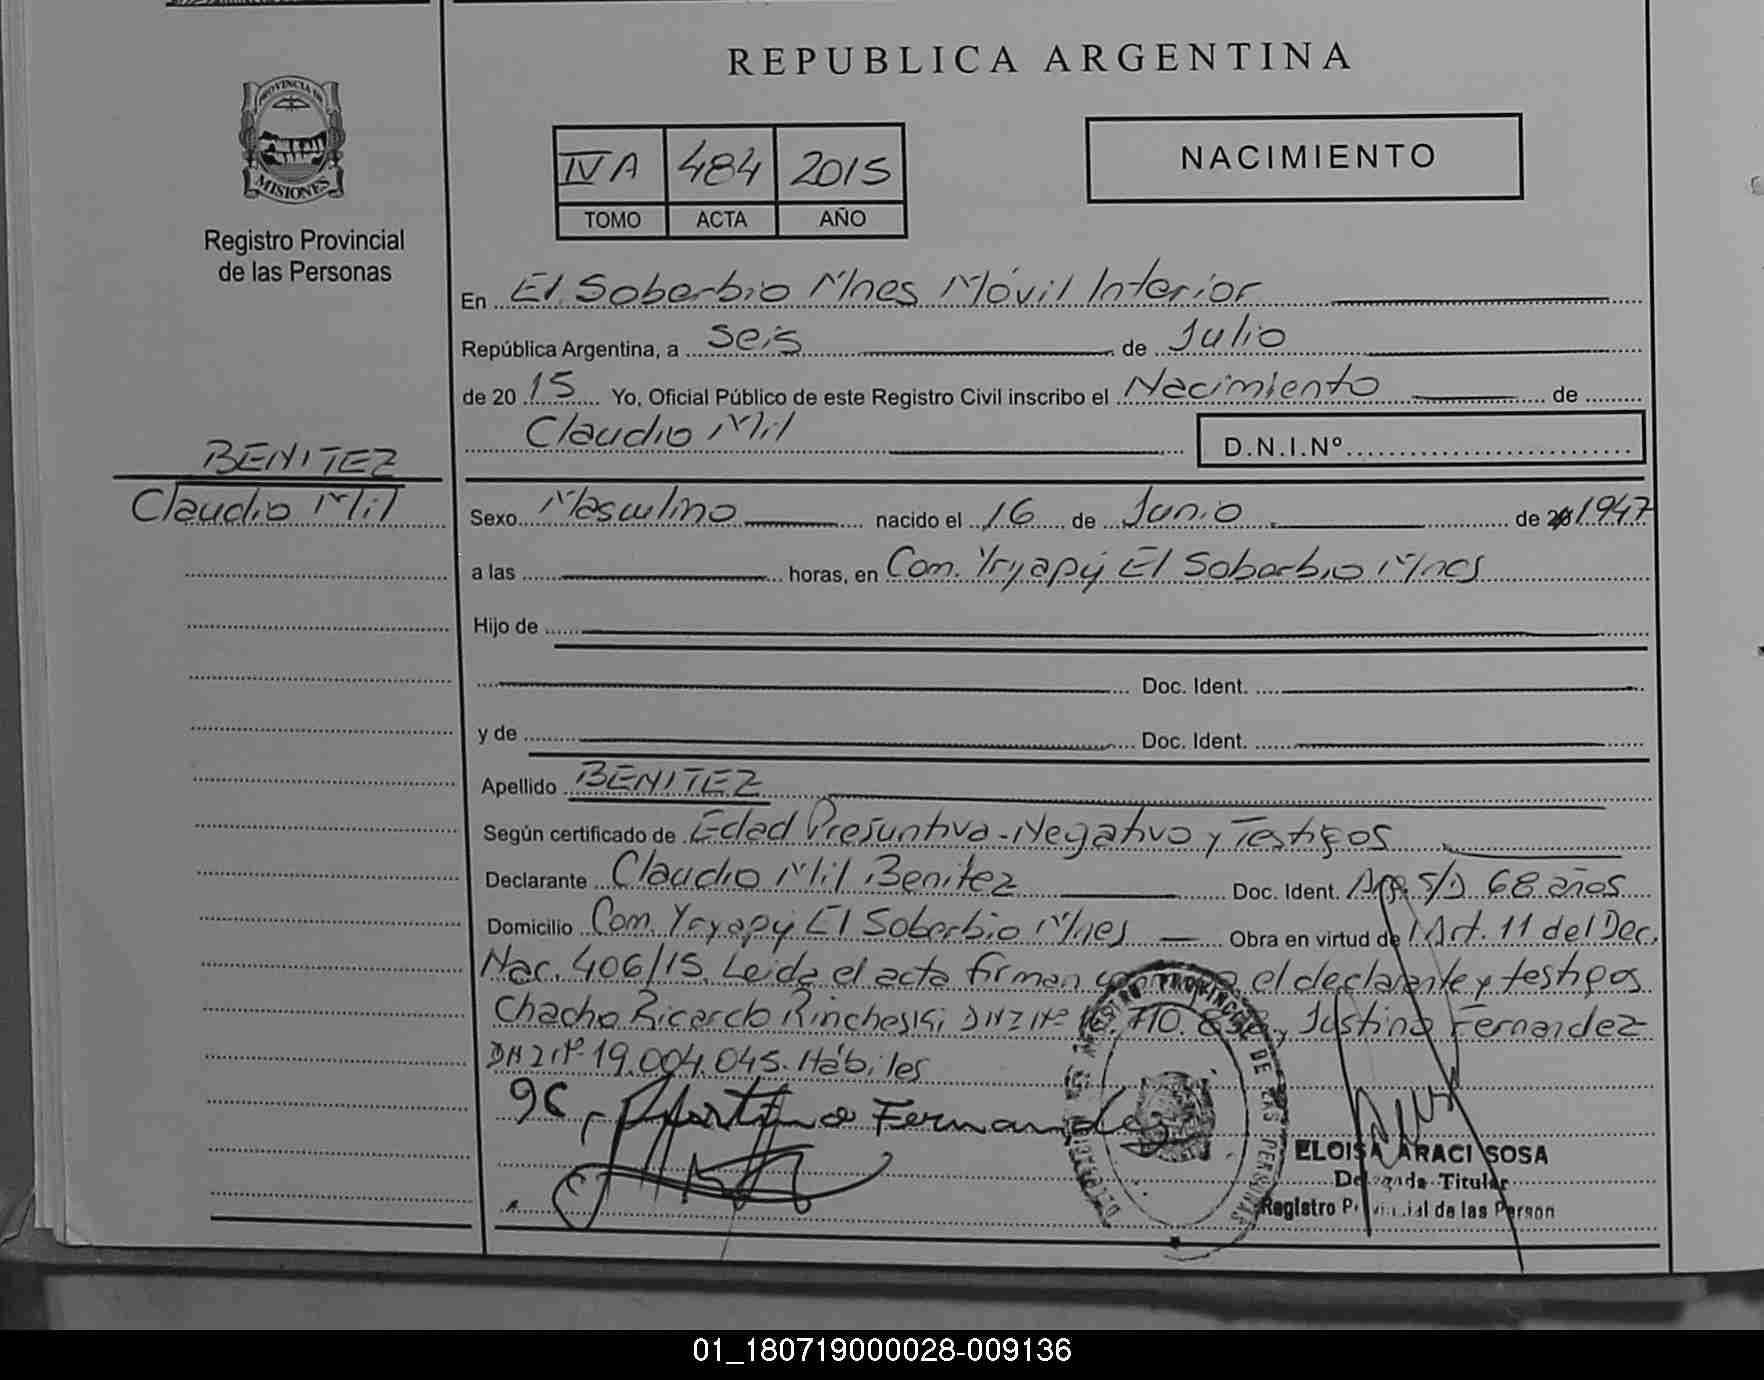 REPUBLICA ARGENTINA
PROVINCIA DE
MISIONES
Registro Provincial
de las Personas
IV A 484 2015
TOMO ACTA AÑO
NACIMIENTO
En El Soberbio Mnes Móvil Interior
República Argentina, a seis de Julio
de 20 15 Yo, Oficial Público de este Registro Civil inscribo el Nacimiento de
Claudio Mil D.N.I.Nº
BENITEZ
Claudio Mil
Sexo Masculino nacido el 16 de Junio de 20 1947
a las horas, en Com. Yryapÿ El Soberbio Mnes
Hijo de
Doc. Ident.
y de Doc. Ident.
Apellido BENITEZ
Según certificado de Edad Presuntiva-Negativo y Testigos
Declarante Claudio Mil Benitez Doc. Ident. Arg. S/D 68 años
Domicilio Com. Yryapÿ El Soberbio Mnes Obra en virtud de l Art. 11 del Dec.
Nac. 406/15. Leida el acta firman el declarante y testigos
Chacho Ricardo Rincheski DNI Nº 710. y Justino Fernandez
DNI Nº 19.004.045. Hábiles
Fernandez
REGISTRO PROVINCIAL DE LAS PERSONAS
ELOISA ARACI SOSA
Delegada Titular
Registro Provincial de las Person
01_180719000028-009136